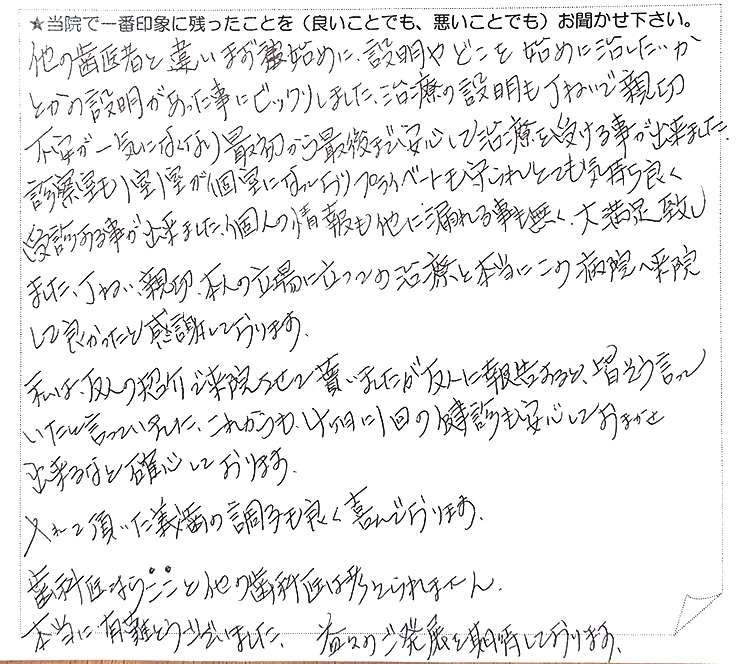 ★当院で一番印象に残ったことを（良いことでも、悪いことでも）お聞かせ下さい。
他の歯医者と違いまず最始めに、説明やどこを始めに治したいか
とかの説明があった事にビックリしました、治療の説明も丁ねいで親切
不安が一気になくなり最初から最後まで安心して治療を受ける事が出来ました。
診察室も1室1室が個室になっておりプライベートも守られとても気持ち良く
受診する事が出来ました、個人の情報も他に漏れる事も無く、大満足致し
ました、丁ねい、親切、本人の立場に立っての治療と本当にこの病院へ来院
して良かったと感謝しております。
私は、友人の紹介で来院させて貰いましたが友人に報告すると、皆そう言って
いたと言っていました、これからも、4ヶ月に1回の検診も安心しておまかせ
出来るなと確心しております。
入れて頂いた義歯の調子も良く喜んでおります。
歯科医はもうここと他の歯科医は考えられません。
本当に有難とうございました、益々のご発展を期待しております。